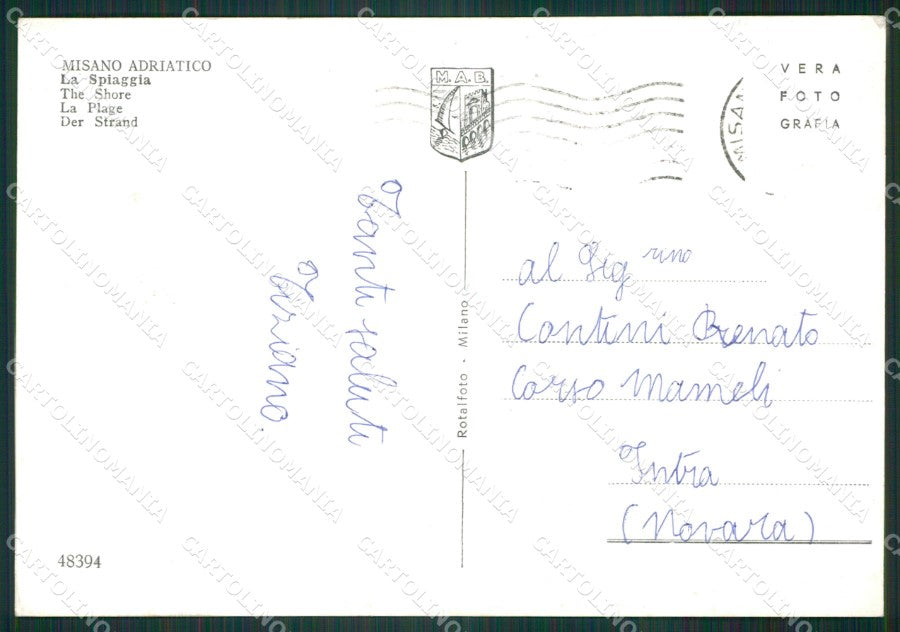 MISANO ADRIATICO
La Spiaggia
The Shore
La Plage
Der Strand
M.A.B.
MISAN
VERA
FOTO
GRAFIA
Tanti saluti
Tiziano.
Rotalfoto - Milano
al Sig rino
Contini Renato
Corso Mameli
Intra
(Novara)
48394
CARTOLINOMANIA